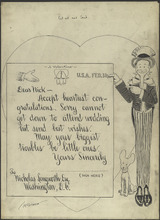 U.S.A. FEB. 18
Dear Nick —
Accept heartiest con-
gratulations. Sorry cannot
get down to attend wedding
but send best wishes.
May your biggest
troubles be little ones.
Yours Sincerely
To
Nicholas Longworth Esq
Washington, D.C.